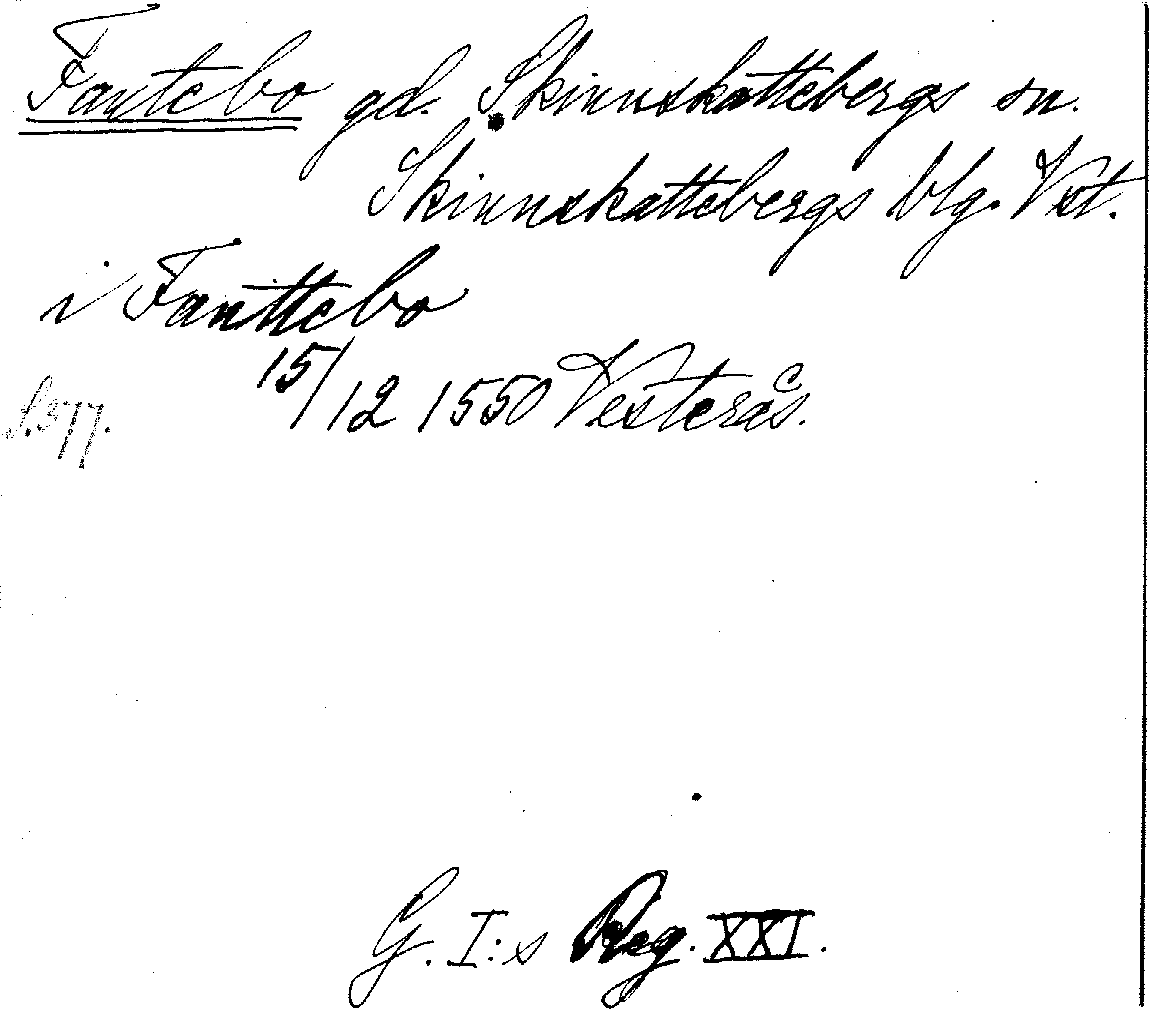 Fantebo gd. Skinnskattebergs sn.
Skinnskattebergs blg. Vst.
i Fanttebo
15/12 1550 Vesterås.
S. 377.
G. I:s Reg. XXI.